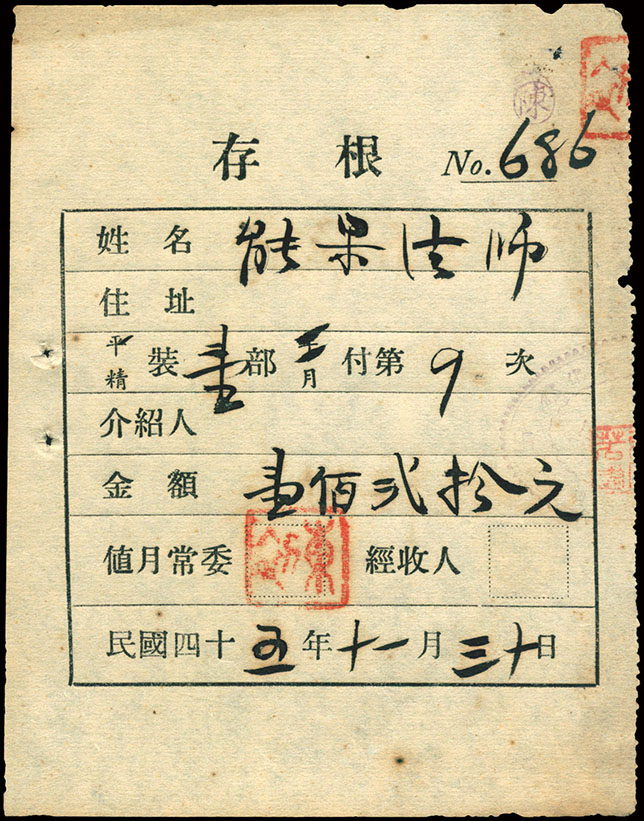 陳
存根 No. 686
姓名 能果法师
住址
平精 裝 壹 部 月 付第 9 次
介紹人
金額 壹佰弍拾元
值月常委 經收人
民國四十五年十一月三十日